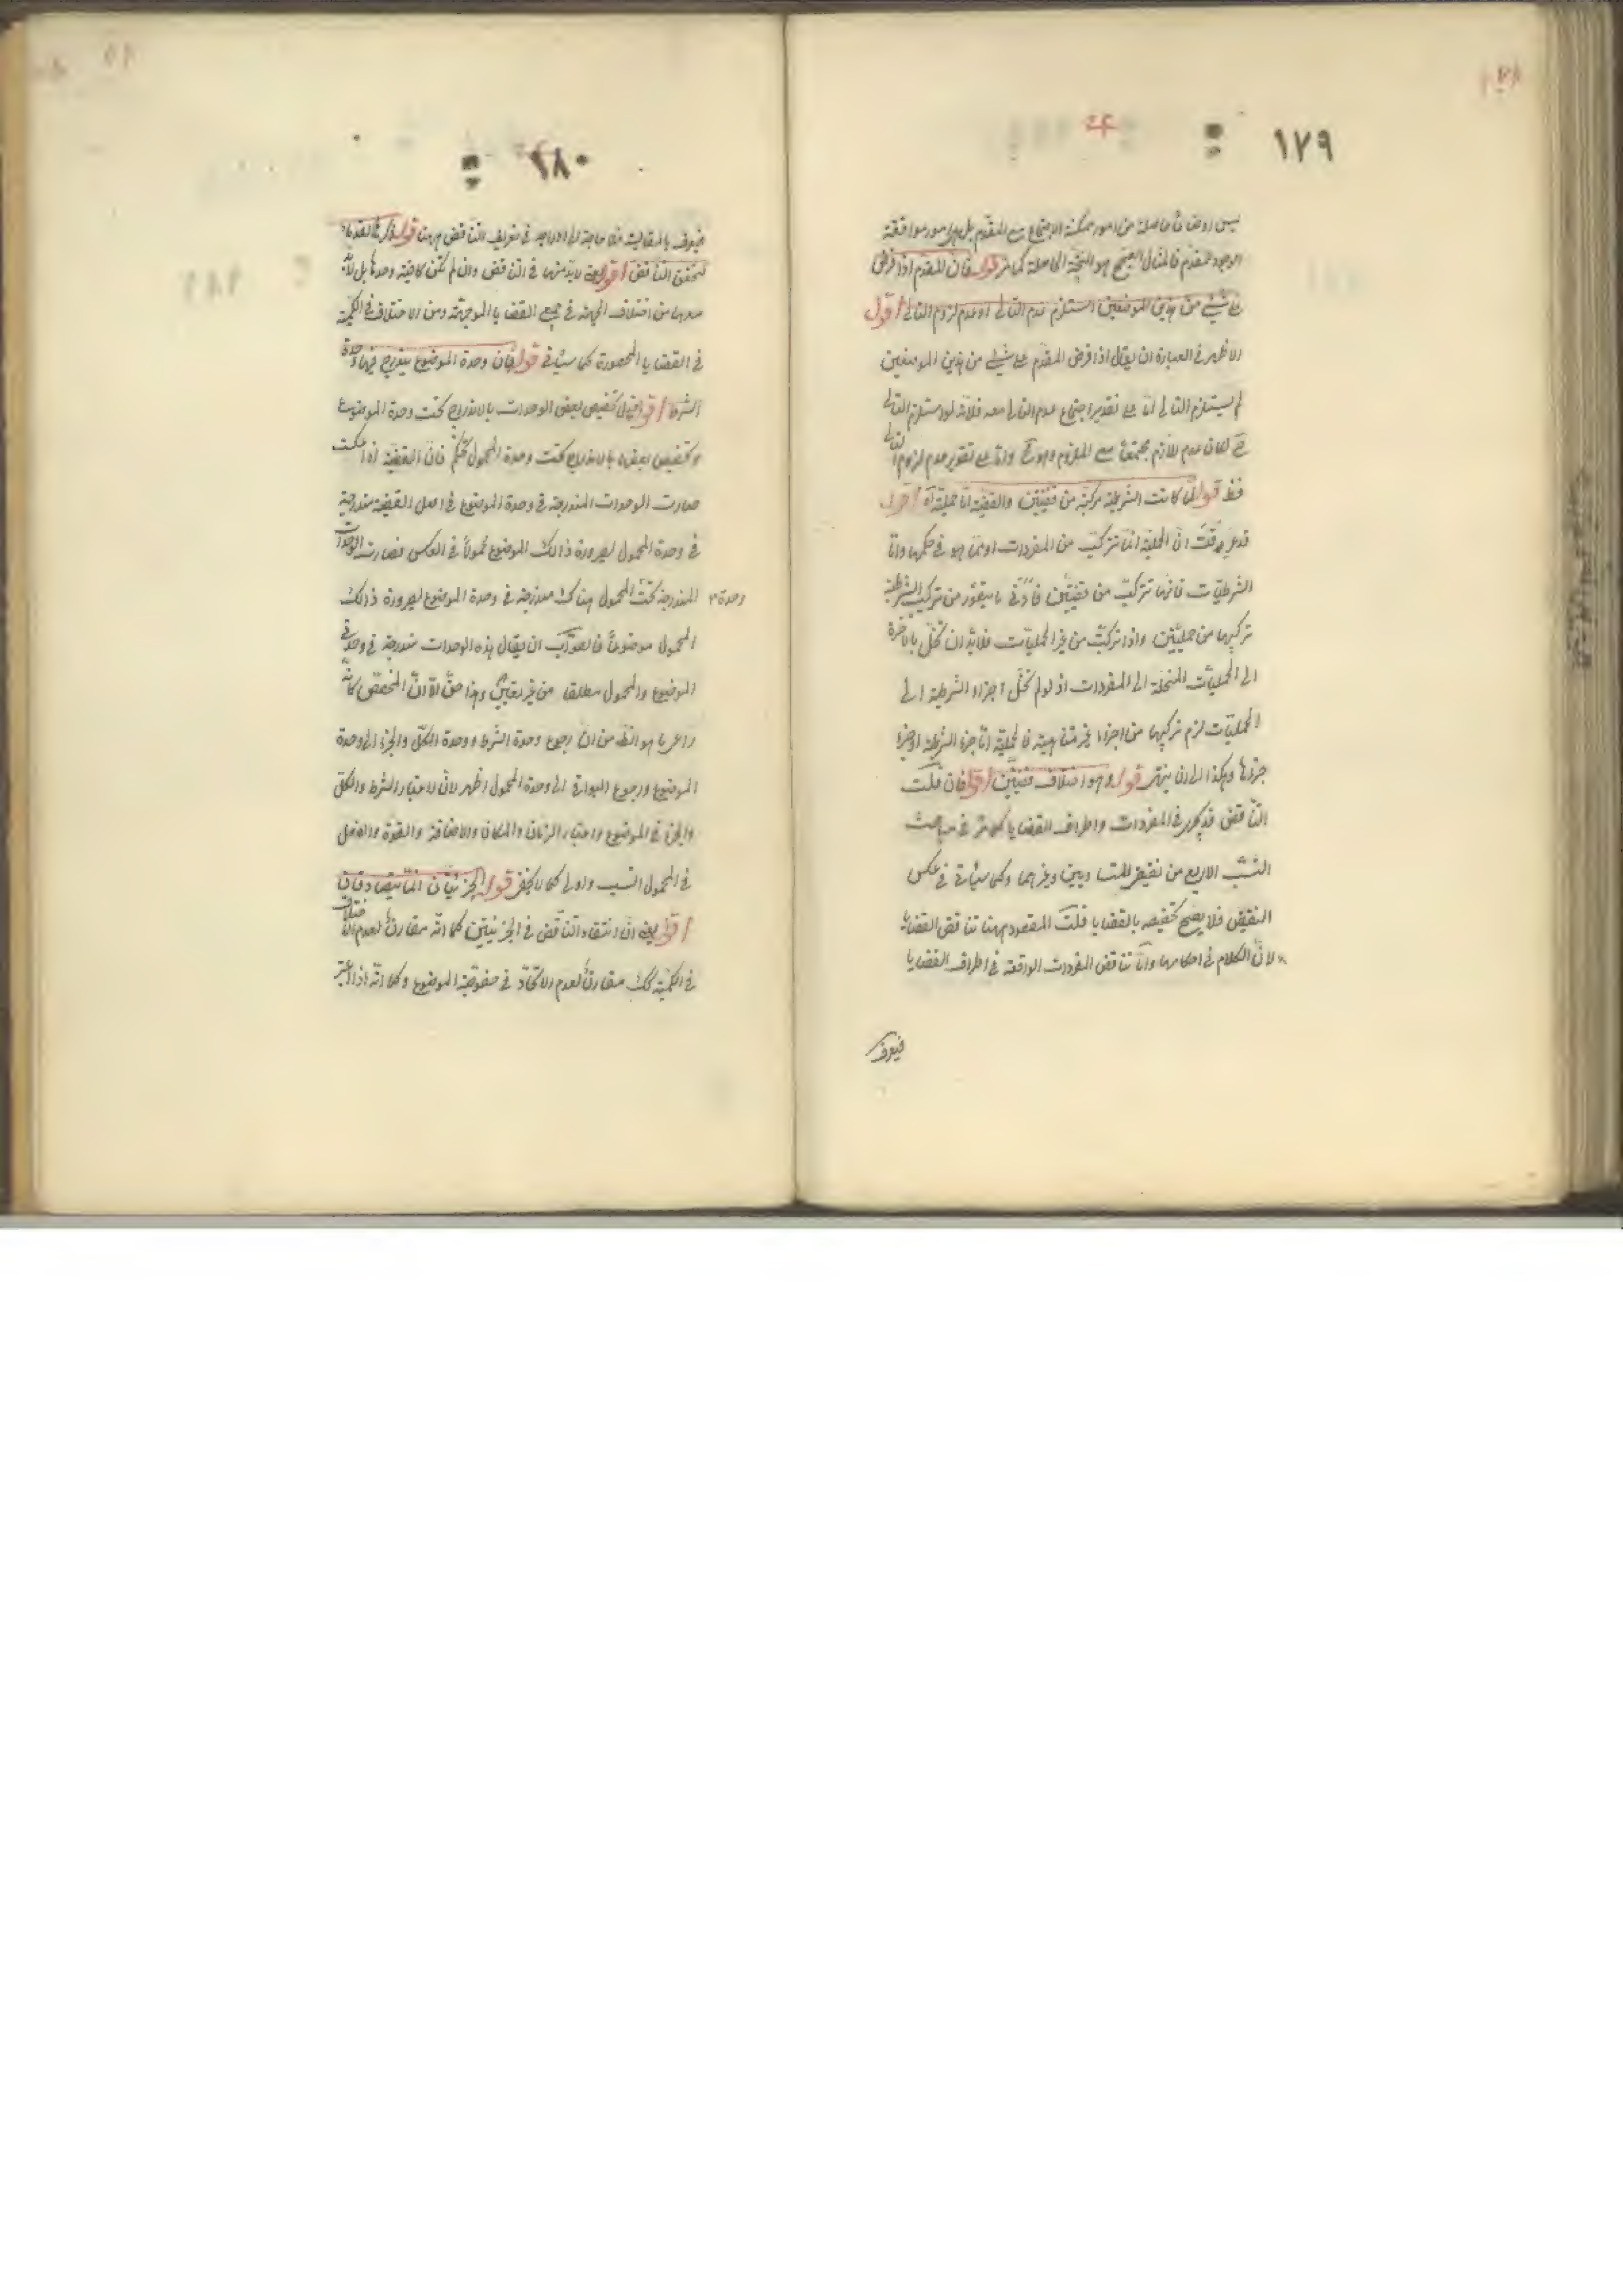 ١٧٩
ليس اوضاعا حاصلة من امور ممكنة الاجتماع مع المقدم بل هى امور موافقة
الوجود للمقدم فالمثال الصحيح هو النتيجة الحاصلة كما مر قوله فان المقدم اذا فرض
على شيئ من هذين الموضعين استلزم عدم التالى او عدم لزوم التالى اقول
الاظهر فى العبارة ان يقال اذا فرض المقدم على شيئ من هذين الموضعين
لم يستلزم التالى اما على تقدير اجتماع عدم التالى معه فلانه لو استلزم التالى
ح لكان عدم اللازم مجتمعا مع الملزوم وهو مح واما على تقدير عدم لزوم التالى
فظ قوله لما كانت الشرطية مركبة من قضيتين والقضية اما حملية آه اقول
قد عرفت ان الحملية انما تتركب من المفردات او مما هو فى حكمها واما
الشرطيات فانها تتركب من قضيتين فادنى ما يتصور من تركيب الشرطية
تركيبها من حمليتين واذا تركبت من غير الحمليات فلا بد ان تنحل بالاخرة
الى الحمليات المنحلة الى المفردات اذ لو لم تنحل اجزاء الشرطية الى
الحمليات لزم تركيبها من اجزاء غير متناهية فالحملية اما جزء الشرطية او جزء
جزئها وهكذا الى ان ينتهى قوله وهو اختلاف قضيتين اقول فان قلت
التناقض قد يجرى فى المفردات واطراف القضايا كما مر فى مباحث
النسب الاربع من نقيضى المتساويين وغيرهما وكما سيأتى فى عكس
النقيض فلا يصح تخصيصه بالقضايا قلت المقصود ههنا تناقض القضايا
لان الكلام فى احكامها واما تناقض المفردات الواقعة فى اطراف القضايا
فيعرف
١٨٠
فيعرف بالمقايسة فلا حاجة الى ادراجه فى تعريف التناقض ههنا قوله ذكر القدماء
لتحقق التناقض اقول لا بد منها فى التناقض وان لم تكن كافية وحدها بل لا بد
معها من اختلاف الجهة فى جميع القضايا الموجهة ومن الاختلاف فى الكمية
فى القضايا المحصورة كما سيأتى قوله فان وحدة الموضوع يندرج فيها وحدة
الشرط اقول قيل تخصيص بعض الوحدات بالاندراج تحت وحدة الموضوع
وتخصيص بعضها بالاندراج تحت وحدة المحمول تحكم فان القضية اذا عكست
صارت الوحدات المندرجة فى وحدة الموضوع فى اصل القضية مندرجة
فى وحدة المحمول لصيرورة ذلك الموضوع محمولا فى العكس فصارت الوحدات
المندرجة تحت المحمول هناك مندرجة فى وحدة الموضوع لصيرورة ذلك
وحدة
المحمول موضوعا فالصواب ان يقال هذه الوحدات مندرجة فى وحدتى
الموضوع والمحمول مطلقا من غير تعيين وهذا حق الا ان المخصص كانه
راعى ما هو الظ من ان رجوع وحدة الشرط ووحدة الكل والجزء الى وحدة
الموضوع ورجوع البواقى الى وحدة المحمول اظهر لان اعتبار الشرط والكل
والجزء فى الموضوع واعتبار الزمان والمكان والاضافة والقوة والفعل
فى المحمول انسب واولى كما لا يخفى قوله الجزئيتان انما يتصادقان
اقول يعنى ان انتفاء التناقض فى الجزئيتين كما انه مقارن لعدم الاختلاف
فى الكمية كك مقارن لعدم الاتحاد فى خصوصية الموضوع وكما انه اذا اعتبر